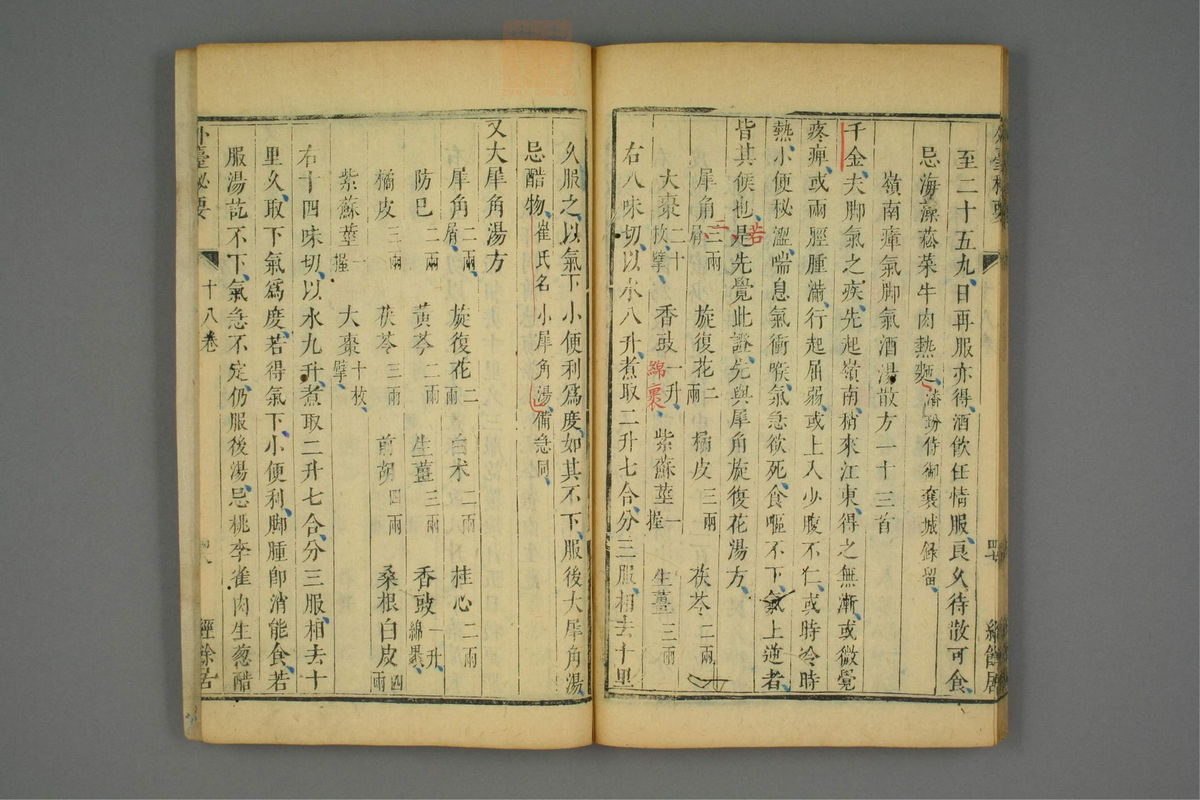 至二十五九日再服亦得酒飲任情服良久待散可食
忌海藻菘菜牛肉熱麵
嶺南瘴氣脚氣酒湯散方一十三首
千金夫脚氣之疾先起嶺南稍來江東得之無漸或微覺
疼痺或兩脛腫滿行起屈弱或上入少腹不仁或時冷時
熱小便秘澀喘息氣衝喉氣急欲死食嘔不下氣上逆者
皆其候也若是先覺此證先與犀角旋復花湯方
犀角二兩屑 旋復花二兩 橘皮三兩 茯苓二兩
大棗二十枚擘 香豉一升綿裹 紫蘇莖一握 生薑三兩
右八味切以水八升煮取二升七合分三服相去十里
久服之以氣下小便利爲度如其不下服後大犀角湯
忌酷物崔氏名小犀角湯備急同
又大犀角湯方
犀角二兩屑 旋復花二兩 白术二兩 桂心二兩
防巳二兩 黃芩二兩 生薑三兩 香豉一升綿裹
橘皮三兩 茯苓三兩 前胡四兩 桑根白皮四兩
紫蘇莖一握 大棗十枚擘
右十四味切以水九升煮取二升七合分三服相去十
里久取下氣爲度若得氣下小便利脚腫即消能食若
服湯訖不下氣急不定仍服後湯忌桃李雀肉生葱醋
外臺秘要 十八卷 四八 經餘居